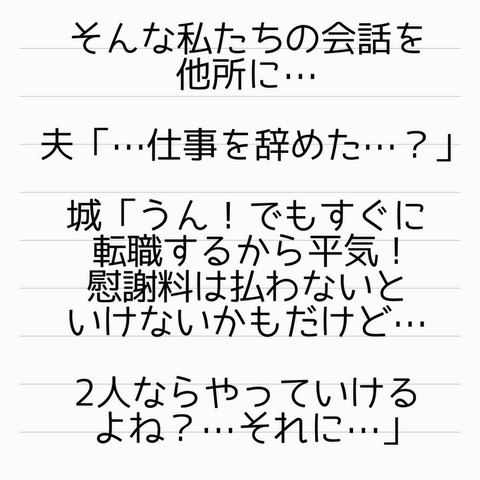 そんな私たちの会話を
他所に…
夫「…仕事を辞めた…？」
城「うん！でもすぐに
転職するから平気！
慰謝料は払わないと
いけないかもだけど…
2人ならやっていける
よね？…それに…」